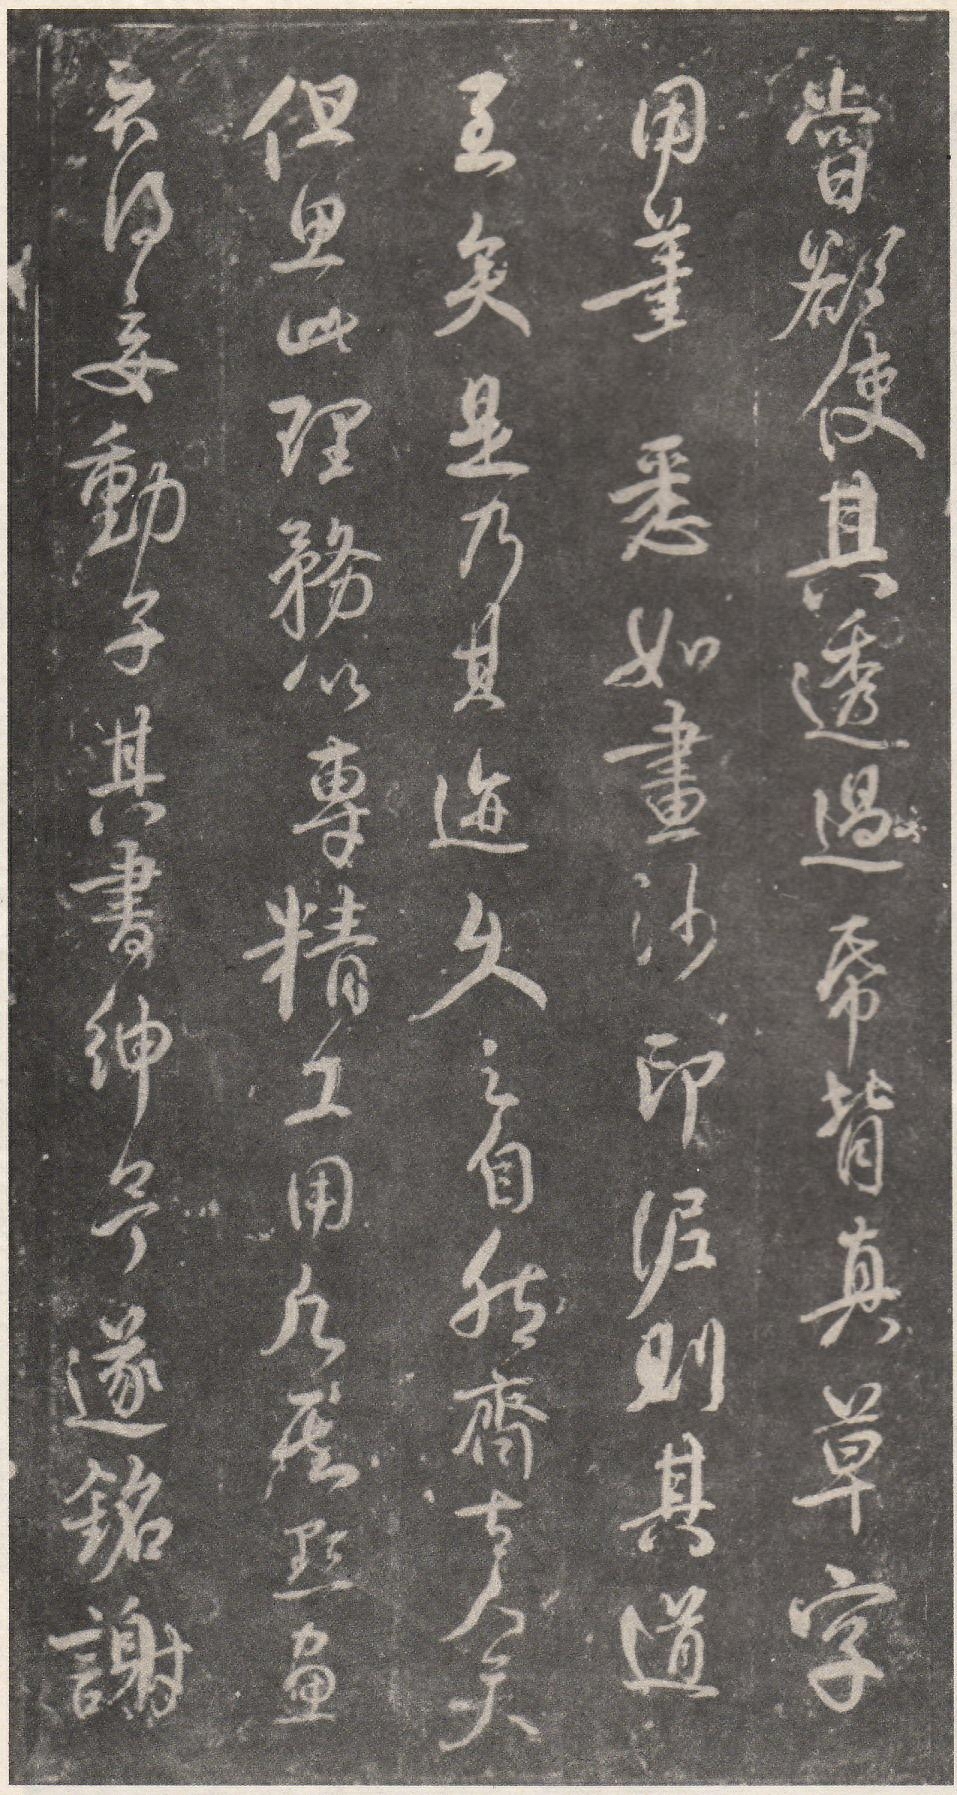 嘗欲使其透過帋背真草字
用筆悉如畫沙印泥則其道
至矣是乃其迹久之自然齊古人矣
但思此理務以專精工用點畫
不得妄動子其書紳予遂銘謝